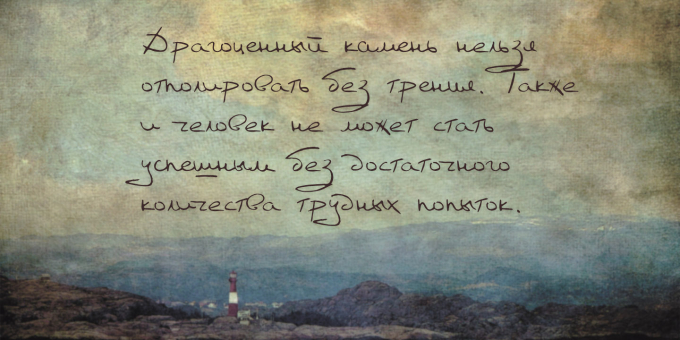 Драгоценный камень нельзя
отполировать без трения. Также
и человек не может стать
успешным без достаточного
количества трудных попыток.